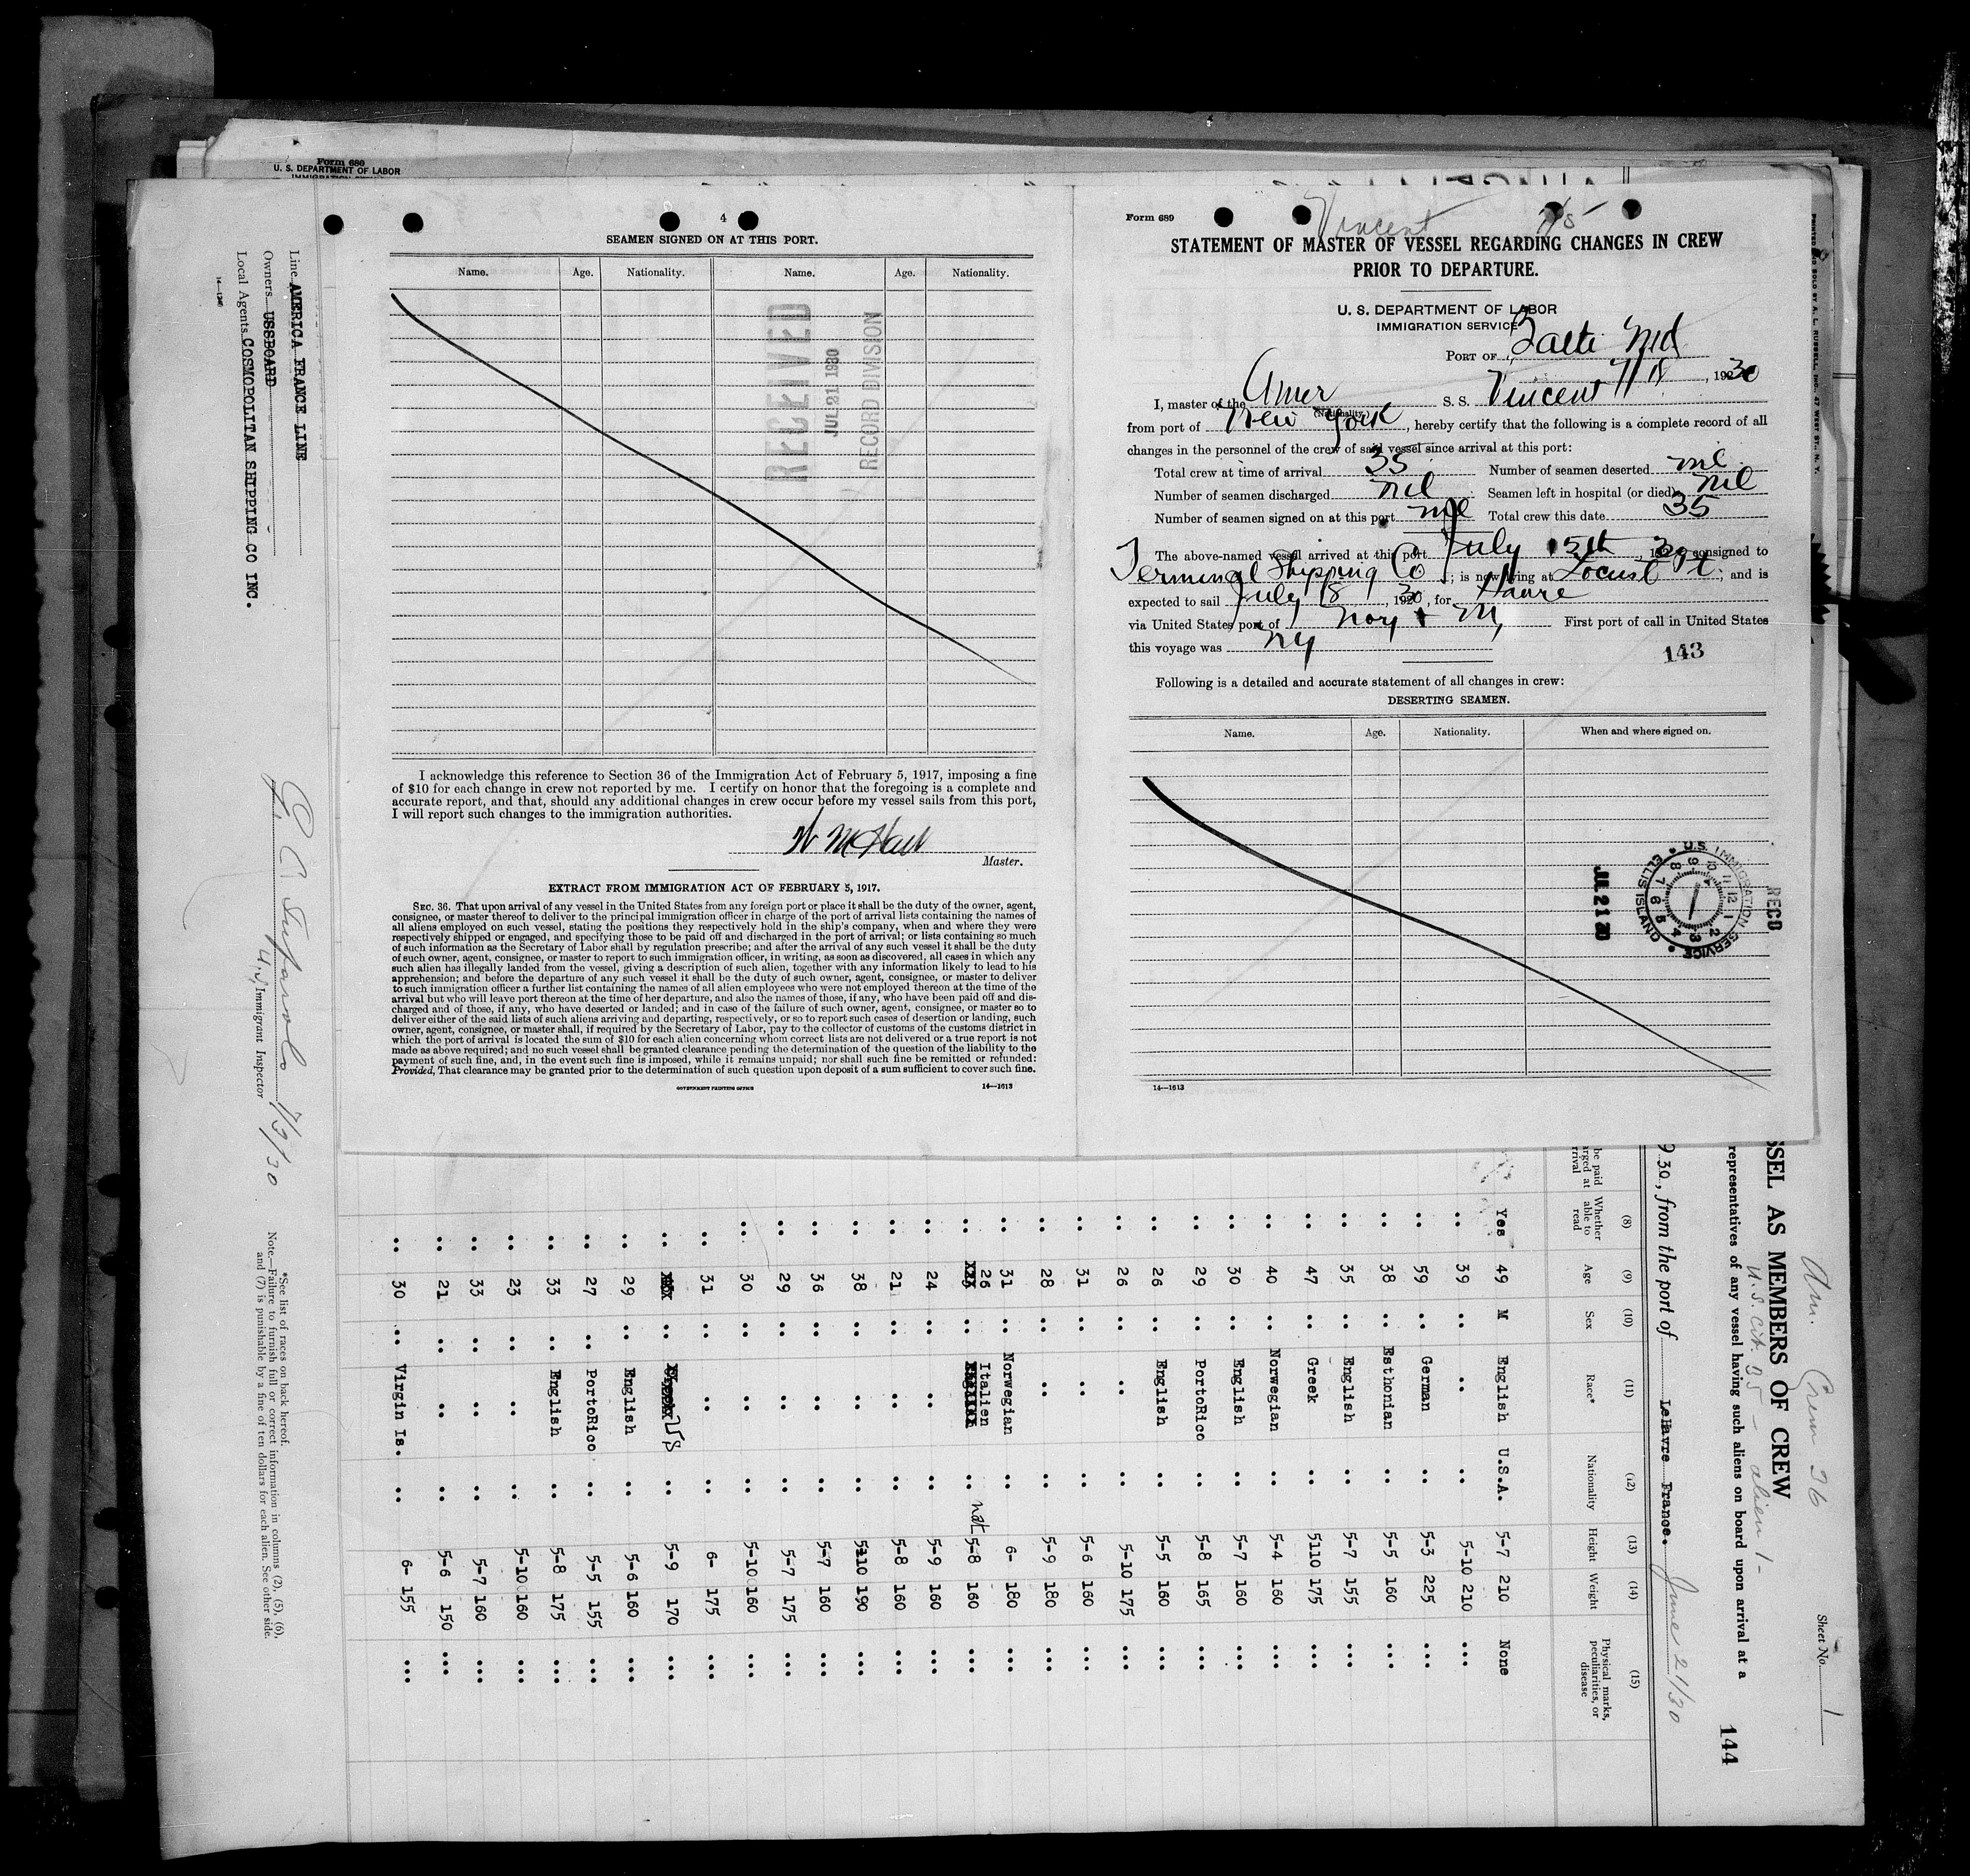 Form 680
U. S. DEPARTMENT OF LABOR
4
SEAMEN SIGNED ON AT THIS PORT.
Name. Age. Nationality. Name. Age. Nationality.
RECEIVED
JUL 21 1930
RECORD DIVISION
I acknowledge this reference to Section 36 of the Immigration Act of February 5, 1917, imposing a fine
of $10 for each change in crew not reported by me. I certify on honor that the foregoing is a complete and
accurate report, and that, should any additional changes in crew occur before my vessel sails from this port,
I will report such changes to the immigration authorities.
Master.
EXTRACT FROM IMMIGRATION ACT OF FEBRUARY 5, 1917.
SEC. 36. That upon arrival of any vessel in the United States from any foreign port or place it shall be the duty of the owner, agent,
consignee, or master thereof to deliver to the principal immigration officer in charge of the port of arrival lists containing the names of
all aliens employed on such vessel, stating the positions they respectively hold in the ship's company, when and where they were
respectively shipped or engaged, and specifying those to be paid off and discharged in the port of arrival; or lists containing so much
of such information as the Secretary of Labor shall by regulation prescribe; and after the arrival of any such vessel it shall be the duty
of such owner, agent, consignee, or master to report to such immigration officer, in writing, as soon as discovered, all cases in which any
such alien has illegally landed from the vessel, giving a description of such alien, together with any information likely to lead to his
apprehension; and before the departure of any such vessel it shall be the duty of such owner, agent, consignee, or master to deliver
to such immigration officer a further list containing the names of all alien employees who were not employed thereon at the time of the
arrival but who will leave port thereon at the time of her departure, and also the names of those, if any, who have been paid off and dis-
charged and of those, if any, who have deserted or landed; and in case of the failure of such owner, agent, consignee, or master so to
deliver either of the said lists of such aliens arriving and departing, respectively, or so to report such cases of desertion or landing, such
owner, agent, consignee, or master shall, if required by the Secretary of Labor, pay to the collector of customs of the customs district in
which the port of arrival is located the sum of $10 for each alien concerning whom correct lists are not delivered or a true report is not
made as above required; and no such vessel shall be granted clearance pending the determination of the question of the liability to the
payment of such fine, and, in the event such fine is imposed, while it remains unpaid; nor shall such fine be remitted or refunded:
Provided, That clearance may be granted prior to the determination of such question upon deposit of a sum sufficient to cover such fine.
GOVERNMENT PRINTING OFFICE 14—1613
Form 689
Vincent 7/18
STATEMENT OF MASTER OF VESSEL REGARDING CHANGES IN CREW
PRIOR TO DEPARTURE.
U. S. DEPARTMENT OF LABOR
IMMIGRATION SERVICE
PORT OF Balto Md
7/18, 1930
I, master of the Amer S. S. Vincent
(Nationality.)
from port of New York, hereby certify that the following is a complete record of all
changes in the personnel of the crew of said vessel since arrival at this port:
Total crew at time of arrival 35 Number of seamen deserted nil
Number of seamen discharged nil Seamen left in hospital (or died) nil
Number of seamen signed on at this port nil Total crew this date 35
The above-named vessel arrived at this port July 15th, 1930 consigned to
Terminal Shipping Co; is now lying at Locust Pt; and is
expected to sail July 18, 1930, for Havre
via United States port of First port of call in United States
this voyage was NY
143
Following is a detailed and accurate statement of all changes in crew:
DESERTING SEAMEN.
Name. Age. Nationality. When and where signed on.
U.S. IMMIGRATION SERVICE ELLIS ISLAND
REC'D
JUL 21 30
14—1613
Line AMERICA FRANCE LINE
Owners USSBOARD
Local Agents COSMOPOLITAN SHIPPING CO INC.
Immigrant Inspector
7/3/30
*See list of races on back hereof.
Note.—Failure to furnish full or correct information in columns (2), (5), (6),
and (7) is punishable by a fine of ten dollars for each alien. See other side.
Am. Crew 36
U.S. cit. 35 - alien 1-
Sheet No. 1
SSEL AS MEMBERS OF CREW
representatives of any vessel having such aliens on board upon arrival at a
144
930, from the port of LeHavre France. June 21/30
(8) (9) (10) (11) (12) (13) (14) (15)
Whether able to read Age Sex Race* Nationality Height Weight Physical marks, peculiarities, or disease
Yes 49 M English U.S.A. 5-7 210 None
.. 39 .. .. .. 5-10 210 ...
.. 59 .. German .. 5-3 225 ...
.. 38 .. Esthonian .. 5-5 160 ...
.. 35 .. English .. 5-7 155 ...
.. 47 .. Greek .. 5110 175 ...
.. 40 .. Norwegian .. 5-4 160 ...
.. 30 .. English .. 5-7 160 ...
.. 29 .. PortoRico .. 5-8 165 ...
.. 26 .. English .. 5-5 160 ...
.. 26 .. .. .. 5-10 175 ...
.. 31 .. .. .. 5-6 160 ...
.. 28 .. .. .. 5-9 180 ...
.. 31 .. Norwegian .. 6- 180 ...
.. 26 .. Italien .. nat 5-8 160 ...
.. 24 .. .. .. 5-9 160 ...
.. 21 .. .. .. 5-8 160 ...
.. 38 .. .. .. 5110 190 ...
.. 36 .. .. .. 5-7 160 ...
.. 29 .. .. .. 5-7 175 ...
.. 30 .. .. .. 5-10 160 ...
.. 31 .. .. .. 6- 175 ...
.. .. .. 5-9 170 ...
.. 29 .. English .. 5-6 160 ...
.. 27 .. PortoRico .. 5-5 155 ...
.. 33 .. English .. 5-8 175 ...
.. 23 .. .. .. 5-10 160 ...
.. 33 .. .. .. 5-7 160 ...
.. 21 .. .. .. 5-6 150 ...
.. 30 .. Virgin Is. .. 6- 155 ...